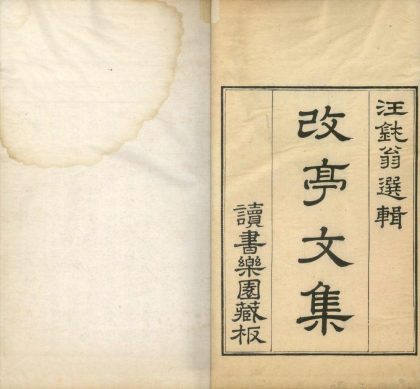 汪鈍翁選輯
改亭文集
讀書樂園藏板